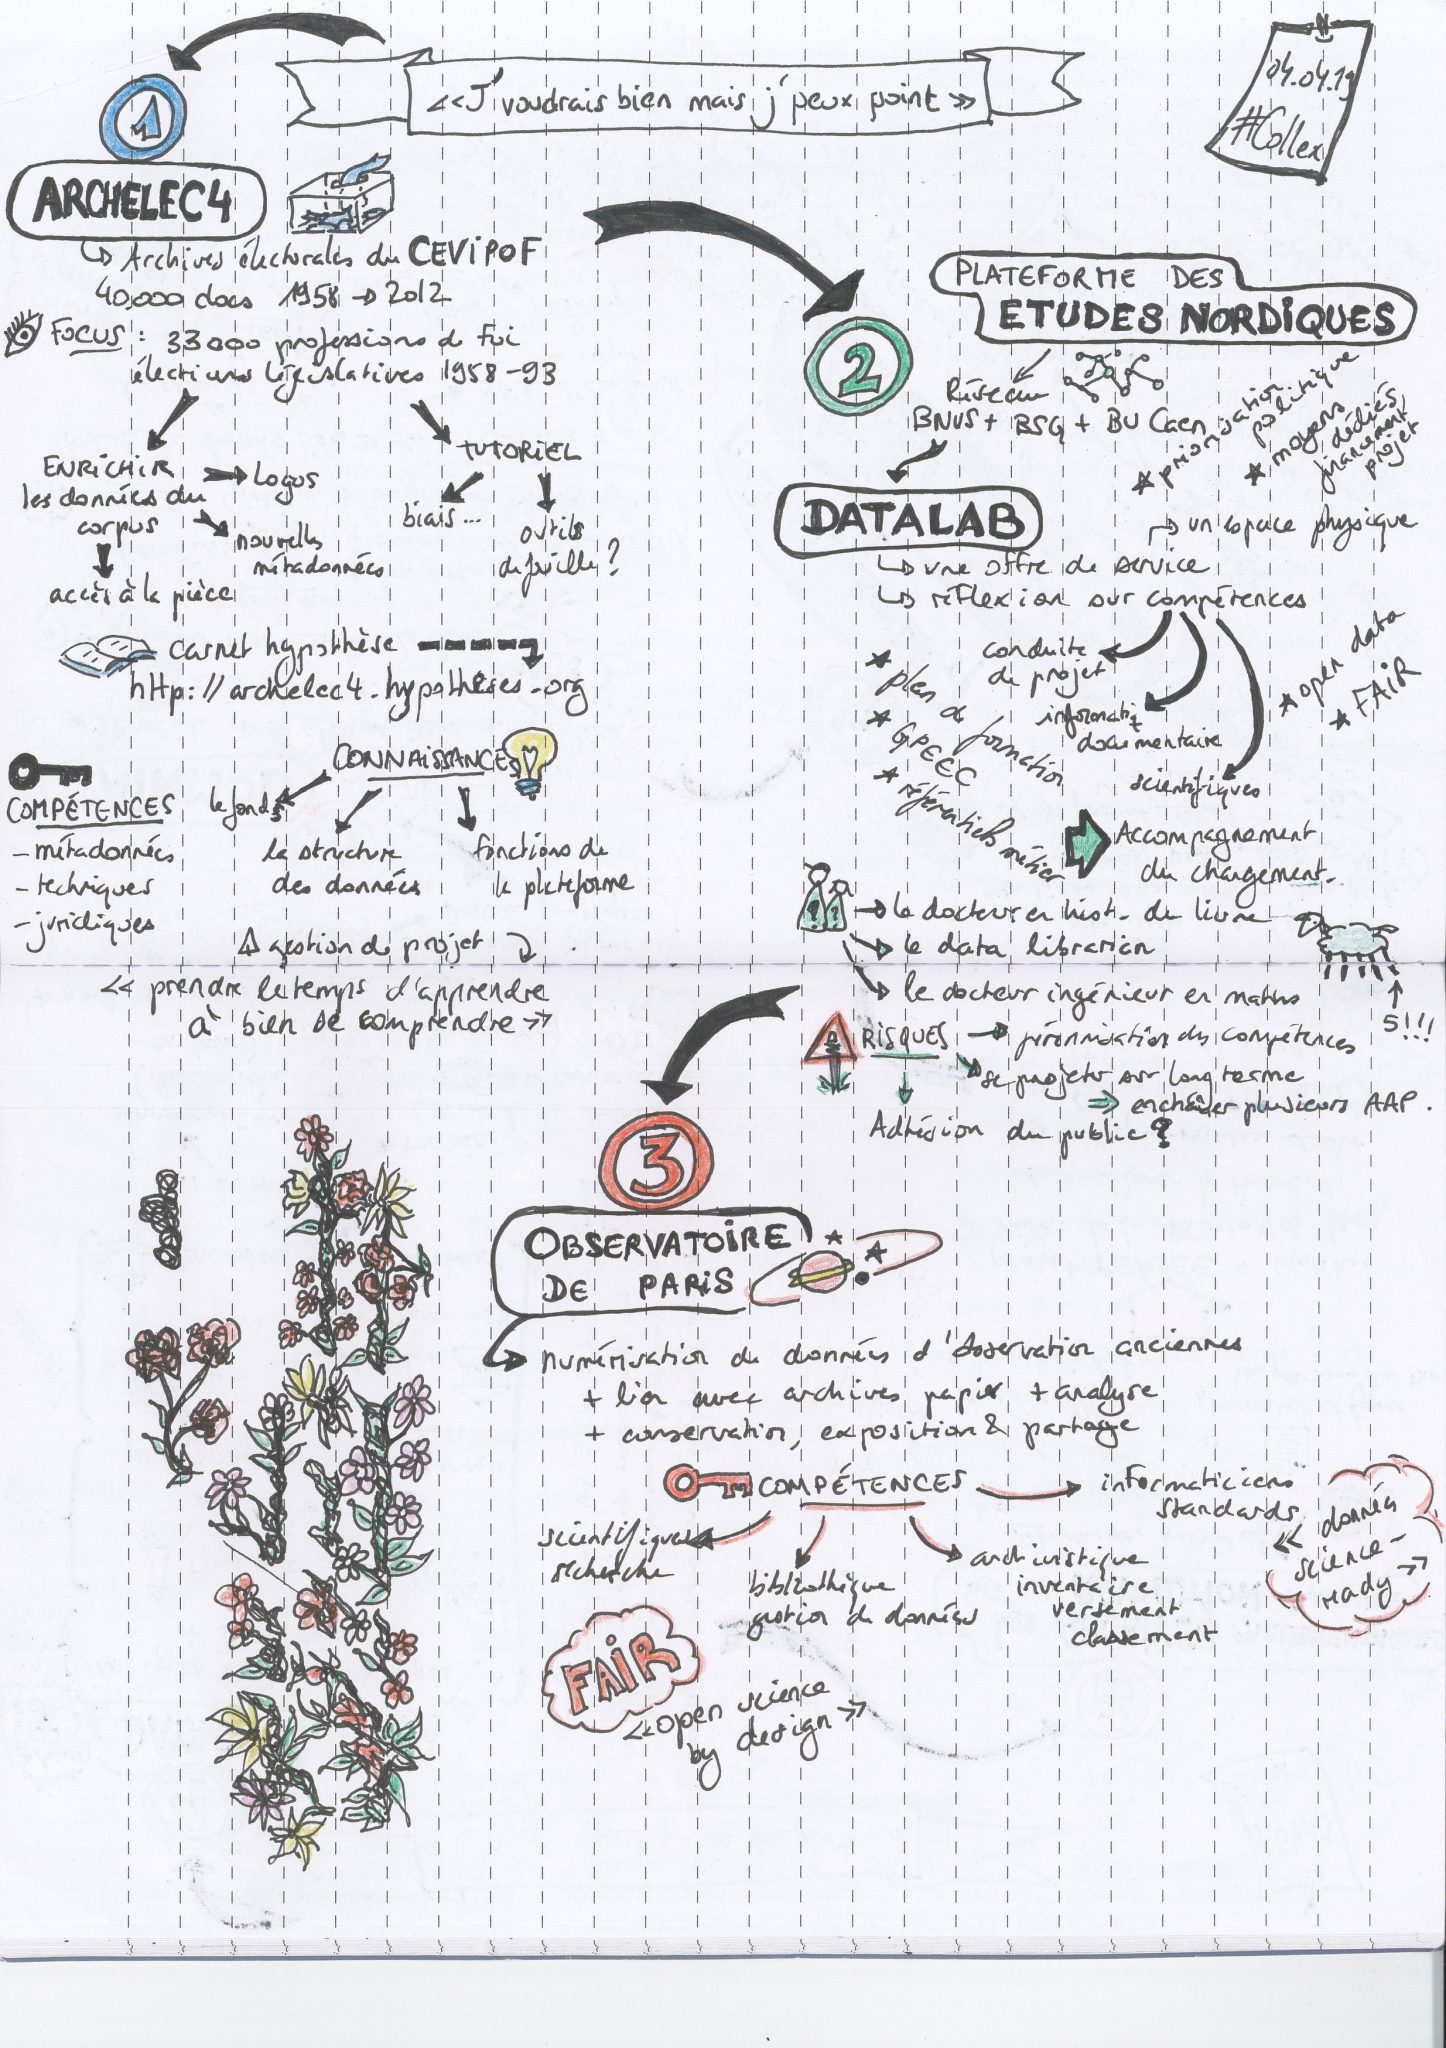 « J'voudrais bien mais j'peux point »
04.04.19
#Collex
1
ARCHELEC4
Archives électorales du CEVIPOF
40.000 docs 1958 → 2012
FOCUS : 33000 professions de foi
élections législatives 1958-93
ENRICHIR
les données du
corpus
logos
nouvelles
métadonnées
accès à la pièce
TUTORIEL
biais...
outils
de fouille ?
carnet hypothèse
http://archelec4.hypotheses.org
COMPÉTENCES
- métadonnées
- techniques
- juridiques
CONNAISSANCES
le fonds
la structure
des données
fonctions de
la plateforme
gestion de projet
« prendre le temps d'apprendre
à bien se comprendre »
2
PLATEFORME DES
ETUDES NORDIQUES
Réseau
BNUS + BSG + BU Caen
priorisation
politique
moyens
dédiés,
financement
projet
DATALAB
un espace physique
une offre de service
réflexion sur compétences
conduite
de projet
informat°
documentaire
scientifiques
open data
FAIR
plan de formation
GPEEC
référentiels métier
Accompagnement
du changement.
le docteur en hist. du livre
le data librarian
le docteur ingénieur en maths
5!!!
RISQUES
pérennisation des compétences
se projeter sur long terme
⇒ enchaîner plusieurs AAP.
Adhésion du public ?
3
OBSERVATOIRE
DE PARIS
numérisation de données d'observation anciennes
+ lien avec archives papier + analyse
+ conservation, exposition & partage
COMPÉTENCES
informaticiens
standards
« données
science-
ready »
scientifiques
recherche
bibliothèque
gestion de données
archivistique
inventaire
versement
classement
FAIR
« open science
by design »